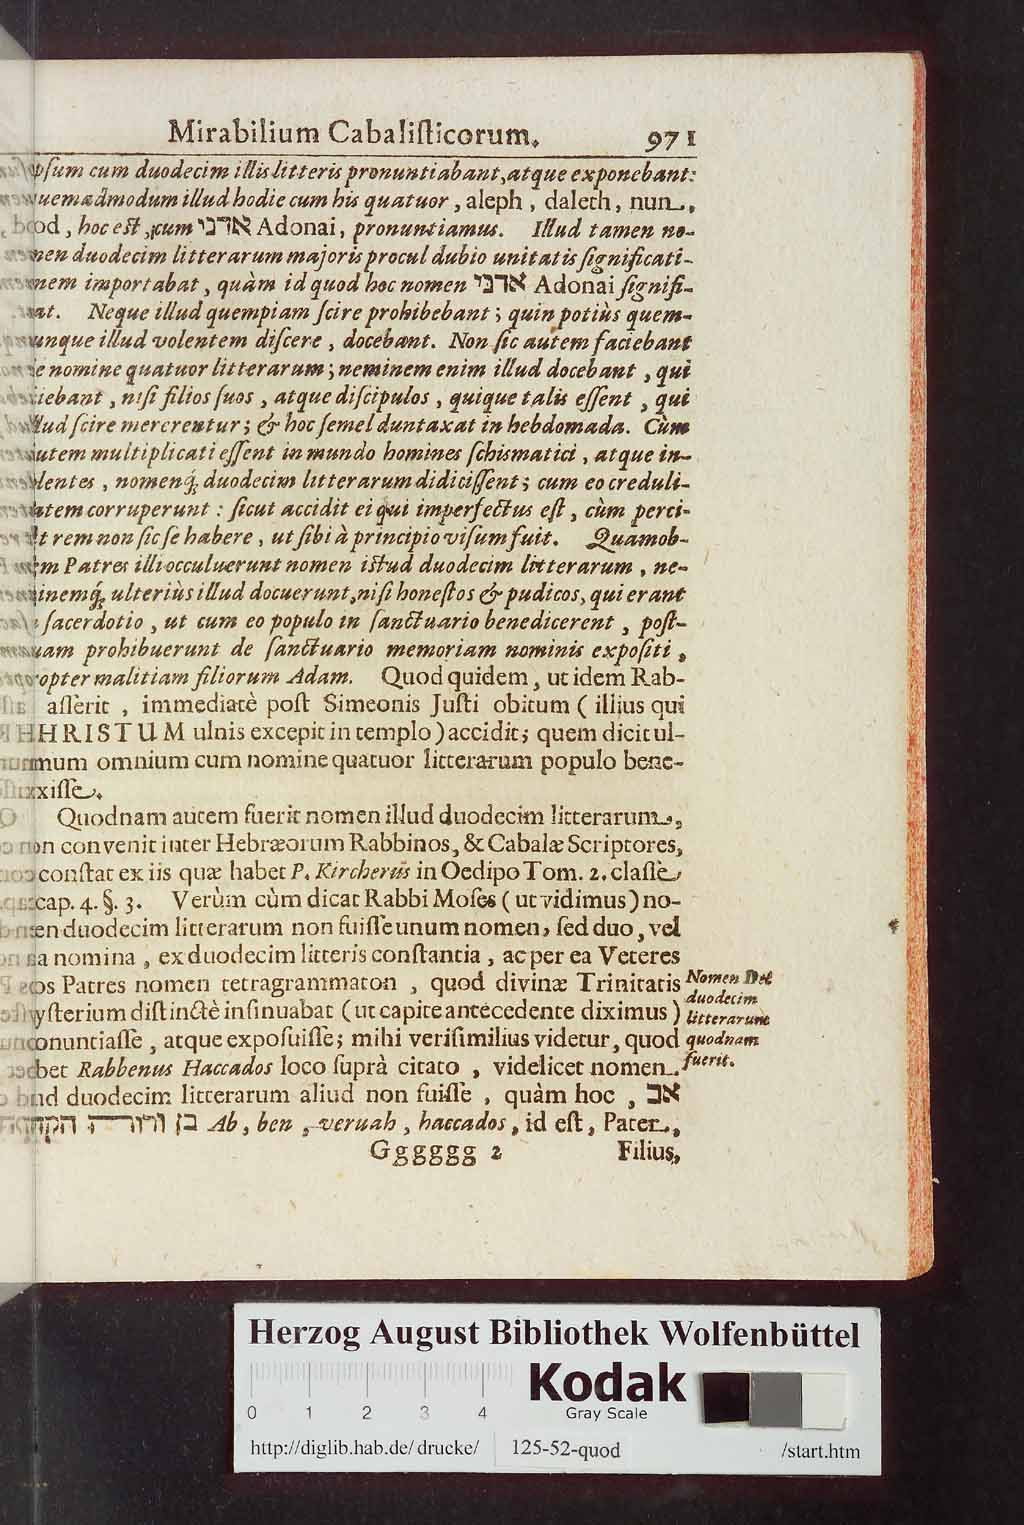 Mirabilium Cabalisticorum. 971
ipsum cum duodecim illis litteris pronuntiabant, atque exponebant:
quemadmodum illud hodie cum his quatuor, aleph, daleth, nun,
jod, hoc est, cum אדני Adonai, pronuntiamus. Illud tamen no-
men duodecim litterarum majoris procul dubio unitatis significati-
onem importabat, quàm id quod hoc nomen אדני Adonai signifi-
cat. Neque illud quempiam scire prohibebant; quin potiùs quem-
cunque illud volentem discere, docebant. Non sic autem faciebant
de nomine quatuor litterarum; neminem enim illud docebant, qui
sciebant, nisi filios suos, atque discipulos, quique talis essent, qui
illud scire mererentur; & hoc semel duntaxat in hebdomada. Cùm
autem multiplicati essent in mundo homines schismatici, atque in-
solentes, nomenq́; duodecim litterarum didicissent; cum eo creduli-
tatem corruperunt: sicut accidit ei qui imperfectus est, cùm perci-
pit rem non sic se habere, ut sibi à principio visum fuit. Quamob-
rem Patres illi occuluerunt nomen istud duodecim litterarum, ne-
minemq́; ulteriùs illud docuerunt, nisi honestos & pudicos, qui erant
in sacerdotio, ut cum eo populo in sanctuario benedicerent, post-
quam prohibuerunt de sanctuario memoriam nominis expositi,
propter malitiam filiorum Adam. Quod quidem, ut idem Rab-
bi asserit, immediatè post Simeonis Justi obitum (illius qui
CHRISTUM ulnis excepit in templo) accidit; quem dicit ul-
timum omnium cum nomine quatuor litterarum populo bene-
dixisse.
Quodnam autem fuerit nomen illud duodecim litterarum,
non convenit inter Hebræorum Rabbinos, & Cabalæ Scriptores,
constat ex iis quæ habet P. Kircherus in Oedipo Tom. 2. classe
cap. 4. §. 3. Verùm cùm dicat Rabbi Moses (ut vidimus) no-
men duodecim litterarum non fuisse unum nomen, sed duo, vel
tria nomina, ex duodecim litteris constantia, ac per ea Veteres
eos Patres nomen tetragrammaton, quod divinæ Trinitatis
mysterium distinctè insinuabat (ut capite antecedente diximus)
pronuntiasse, atque exposuisse; mihi verisimilius videtur, quod
habet Rabbenus Haccados loco suprà citato, videlicet nomen
illud duodecim litterarum aliud non fuisse, quàm hoc, אב
בן ורוח הקדוש Ab, ben, veruah, haccados, id est, Pater,
Nomen Dei
duodecim
litterarum
quodnam
fuerit.
Gggggg 2 Filius,
Herzog August Bibliothek Wolfenbüttel
Kodak
Gray Scale
0 1 2 3 4
http://diglib.hab.de/drucke/ 125-52-quod /start.htm